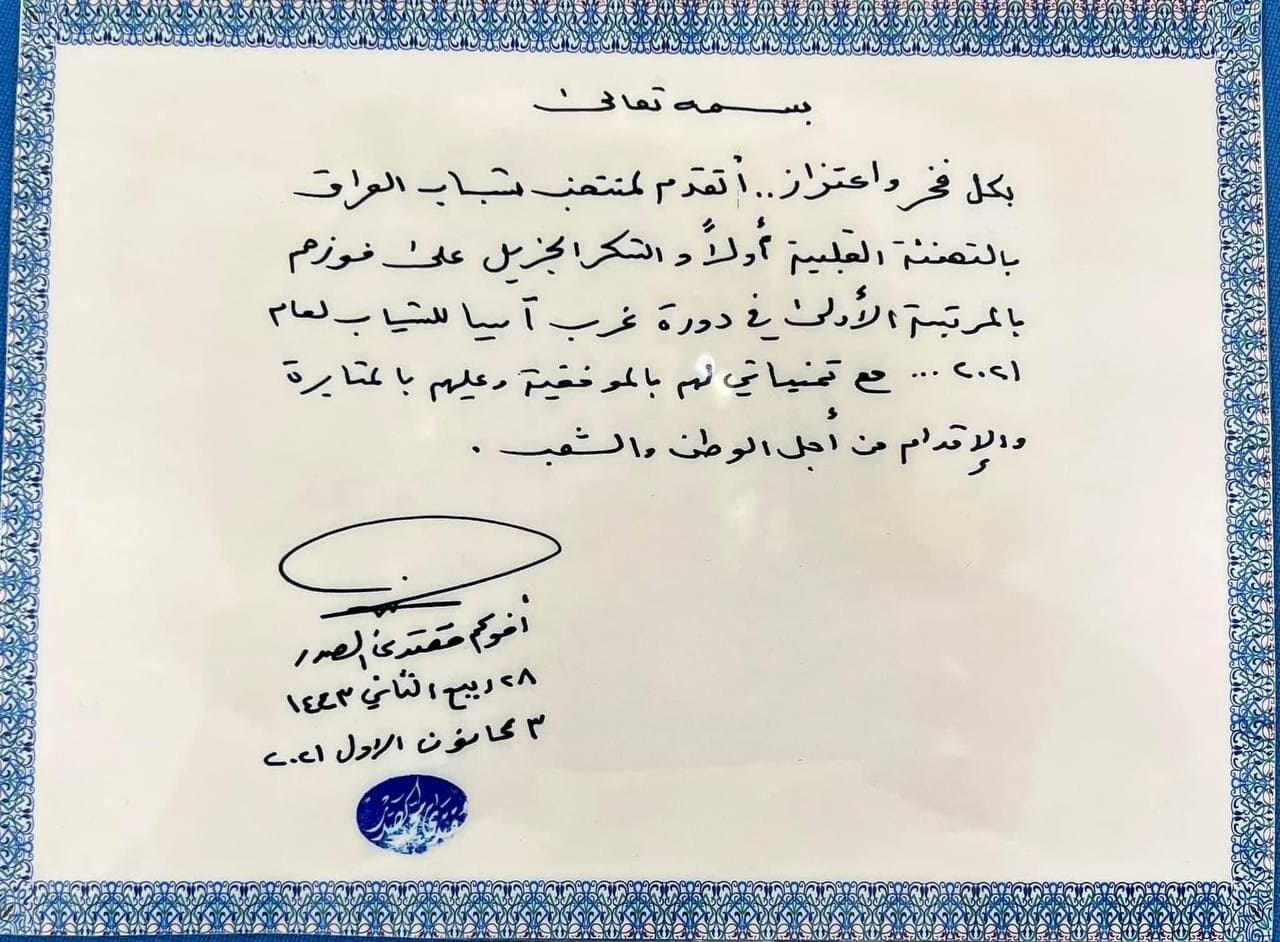 بسمه تعالى
بكل فخر واعتزاز.. أتقدم لمنتخب شباب العراق
بالتهنئة القلبية أولاً والشكر الجزيل على فوزهم
بالمرتبة الأولى في دورة غرب آسيا للشباب لعام
٢٠٢١ ... مع تمنياتي لهم بالموفقية وعليهم بالمثابرة
والإقدام من أجل الوطن والشعب .
أخوكم مقتدى الصدر
٢٨ ربيع الثاني ١٤٤٣
٣ كانون الاول ٢٠٢١
مقتدى الصدر